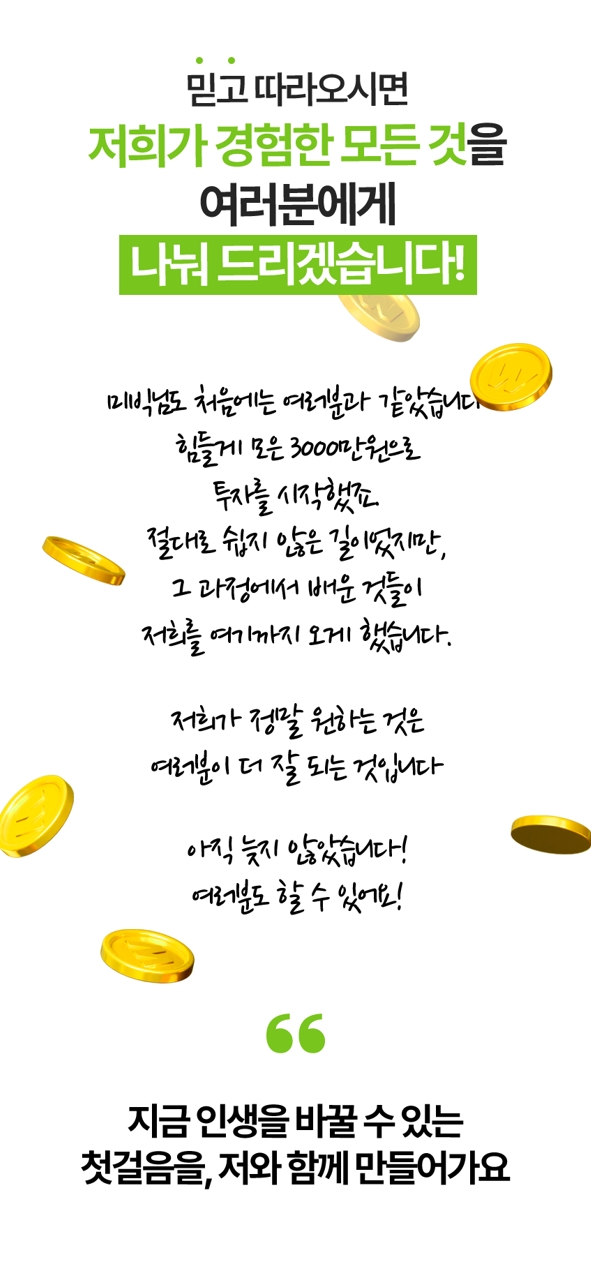 믿고 따라오시면
저희가 경험한 모든 것을
여러분에게
나눠 드리겠습니다!
미빅님도 처음에는 여러분과 같았습니다
힘들게 모은 3000만원으로
투자를 시작했죠
절대로 쉽지 않은 길이었지만,
그 과정에서 배운 것들이
저희를 여기까지 오게 했습니다.
저희가 정말 원하는 것은
여러분이 더 잘 되는 것입니다
아직 늦지 않았습니다!
여러분도 할 수 있어요!
“
지금 인생을 바꿀 수 있는
첫걸음을, 저와 함께 만들어가요